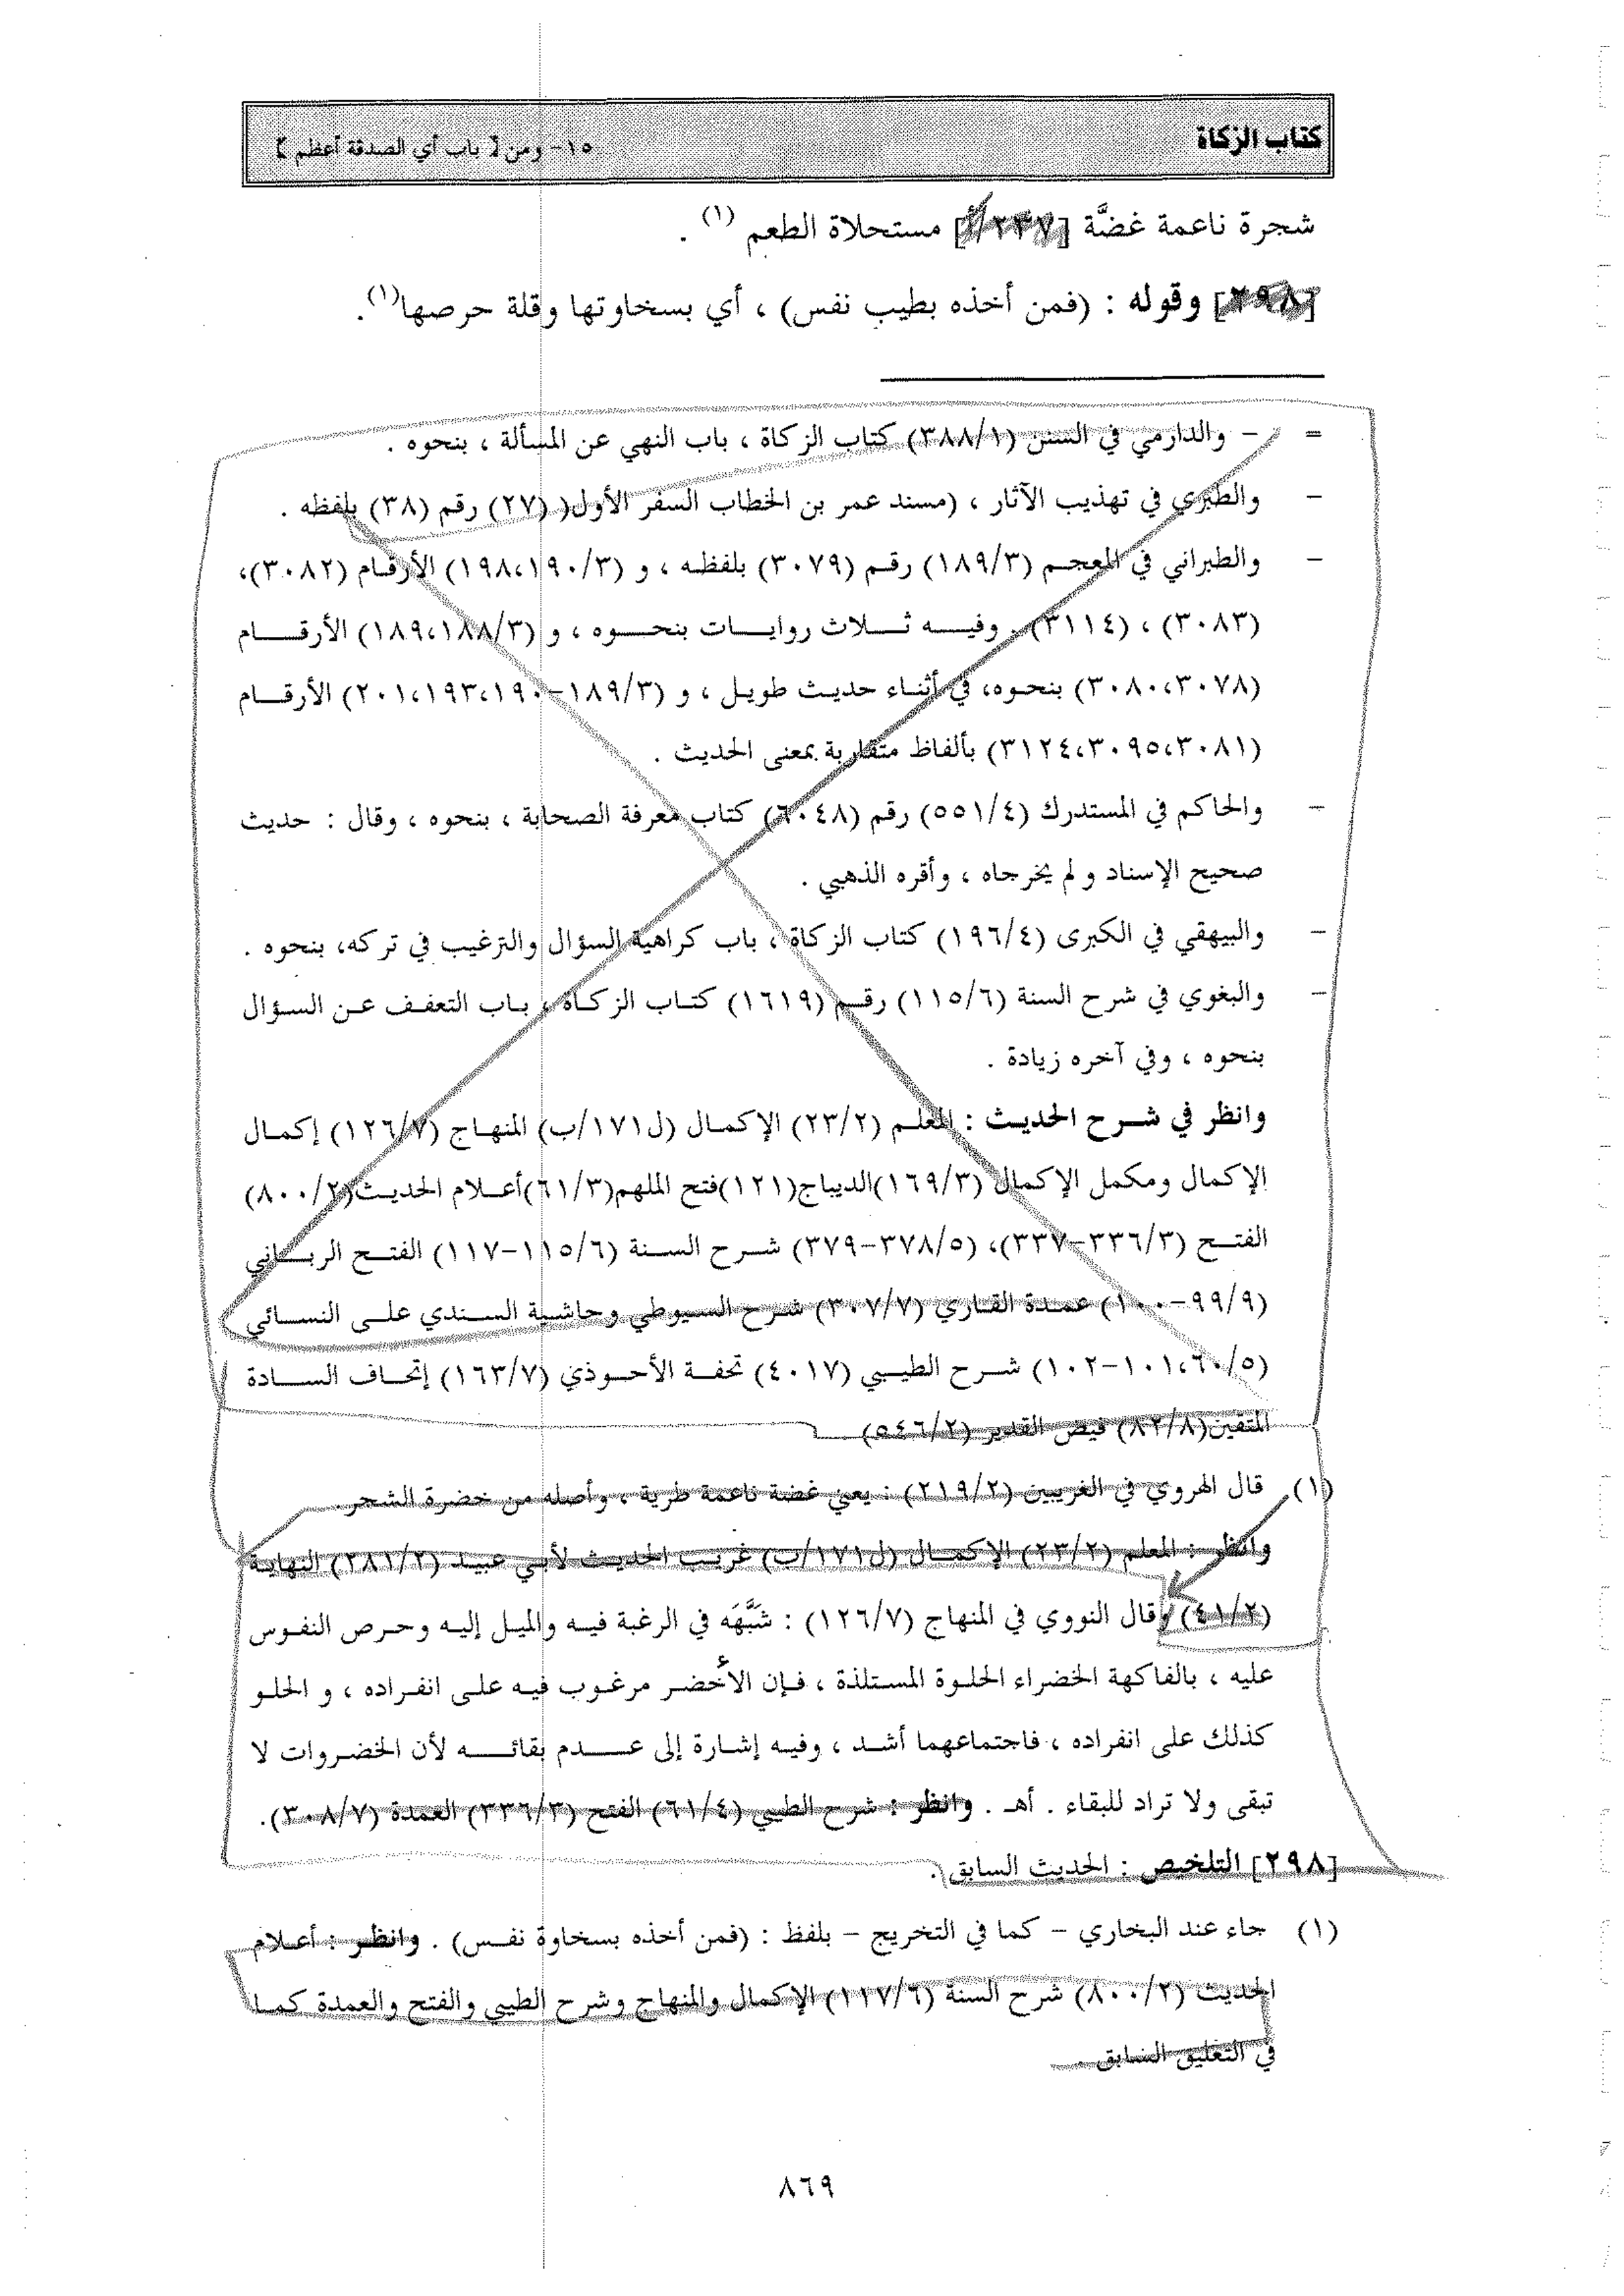 كتاب الزكاة
١٥- ومن [ باب أي الصدقة أعظم ]
شجرة ناعمة غضَّة [٢٣٧/أ] مستحلاة الطعم (١) .
[٢٩٨] وقوله : (فمن أخذه بطيب نفس) ، أي بسخاوتها وقلة حرصها(١).
= - والدارمي في السنن (٣٨٨/١) كتاب الزكاة ، باب النهي عن المسألة ، بنحوه .
- والطبري في تهذيب الآثار ، (مسند عمر بن الخطاب السفر الأول( (٢٧) رقم (٣٨) بلفظه .
- والطبراني في المعجم (١٨٩/٣) رقم (٣٠٧٩) بلفظه ، و (١٩٨،١٩٠/٣) الأرقام (٣٠٨٢)،
(٣٠٨٣) ، (٣١١٤) . وفيه ثلاث روايات بنحوه ، و (١٨٩،١٨٨/٣) الأرقام
(٣٠٨٠،٣٠٧٨) بنحوه، في أثناء حديث طويل ، و (١٨٩/٣-٢٠١،١٩٣،١٩٠) الأرقام
(٣١٢٤،٣٠٩٥،٣٠٨١) بألفاظ متقاربة بمعنى الحديث .
- والحاكم في المستدرك (٥٥١/٤) رقم (٦٠٤٨) كتاب معرفة الصحابة ، بنحوه ، وقال : حديث
صحيح الإسناد و لم يخرجاه ، وأقره الذهبي .
- والبيهقي في الكبرى (١٩٦/٤) كتاب الزكاة ، باب كراهية السؤال والترغيب في تركه، بنحوه .
- والبغوي في شرح السنة (١١٥/٦) رقم (١٦١٩) كتاب الزكاة ، باب التعفف عن السؤال
بنحوه ، وفي آخره زيادة .
وانظر في شرح الحديث : المعلم (٢٣/٢) الإكمال (ل١٧١/ب) المنهاج (١٢٦/٧) إكمال
الإكمال ومكمل الإكمال (١٦٩/٣)الديباج(١٢١)فتح الملهم(٦١/٣)أعلام الحديث(٨٠٠/٢)
الفتح (٣٣٦/٣-٣٣٧)، (٣٧٨/٥-٣٧٩) شرح السنة (١١٥/٦-١١٧) الفتح الرباني
(٩٩/٩-١٠٠) عمدة القاري (٣٠٧/٧) شرح السيوطي وحاشية السندي على النسائي
(١٠١،٦٠/٥-١٠٢) شرح الطيبي (٤٠١٧) تحفة الأحوذي (١٦٣/٧) إتحاف السادة
المتقين(٨٢/٨) فيض القدير (٥٤٦/٢)
(١) قال الهروي في الغريبين (٢١٩/٢) : يعني غضة ناعمة طرية ، وأصله من خضرة الشجر.
وانظر : المعلم (٢٣/٢) الإكمال (ل١٧١/ب) غريب الحديث لأبي عبيد (٢٨١/٢) النهاية
(٤١/٢) وقال النووي في المنهاج (١٢٦/٧) : شَبَّهَه في الرغبة فيه والميل إليه وحرص النفوس
عليه ، بالفاكهة الخضراء الحلوة المستلذة ، فإن الأخضر مرغوب فيه على انفراده ، و الحلو
كذلك على انفراده ، فاجتماعهما أشد ، وفيه إشارة إلى عدم بقائه لأن الخضروات لا
تبقى ولا تراد للبقاء . أهـ . وانظر : شرح الطيبي (٦١/٤) الفتح (٣٣٦/٣) العمدة (٣٠٨/٧).
[٢٩٨] التلخيص : الحديث السابق .
(١) جاء عند البخاري – كما في التخريج – بلفظ : (فمن أخذه بسخاوة نفس) . وانظر : أعلام
الحديث (٨٠٠/٢) شرح السنة (١١٧/٦) الإكمال والمنهاج وشرح الطيبي والفتح والعمدة كما
في التعليق السابق .
٨٦٩